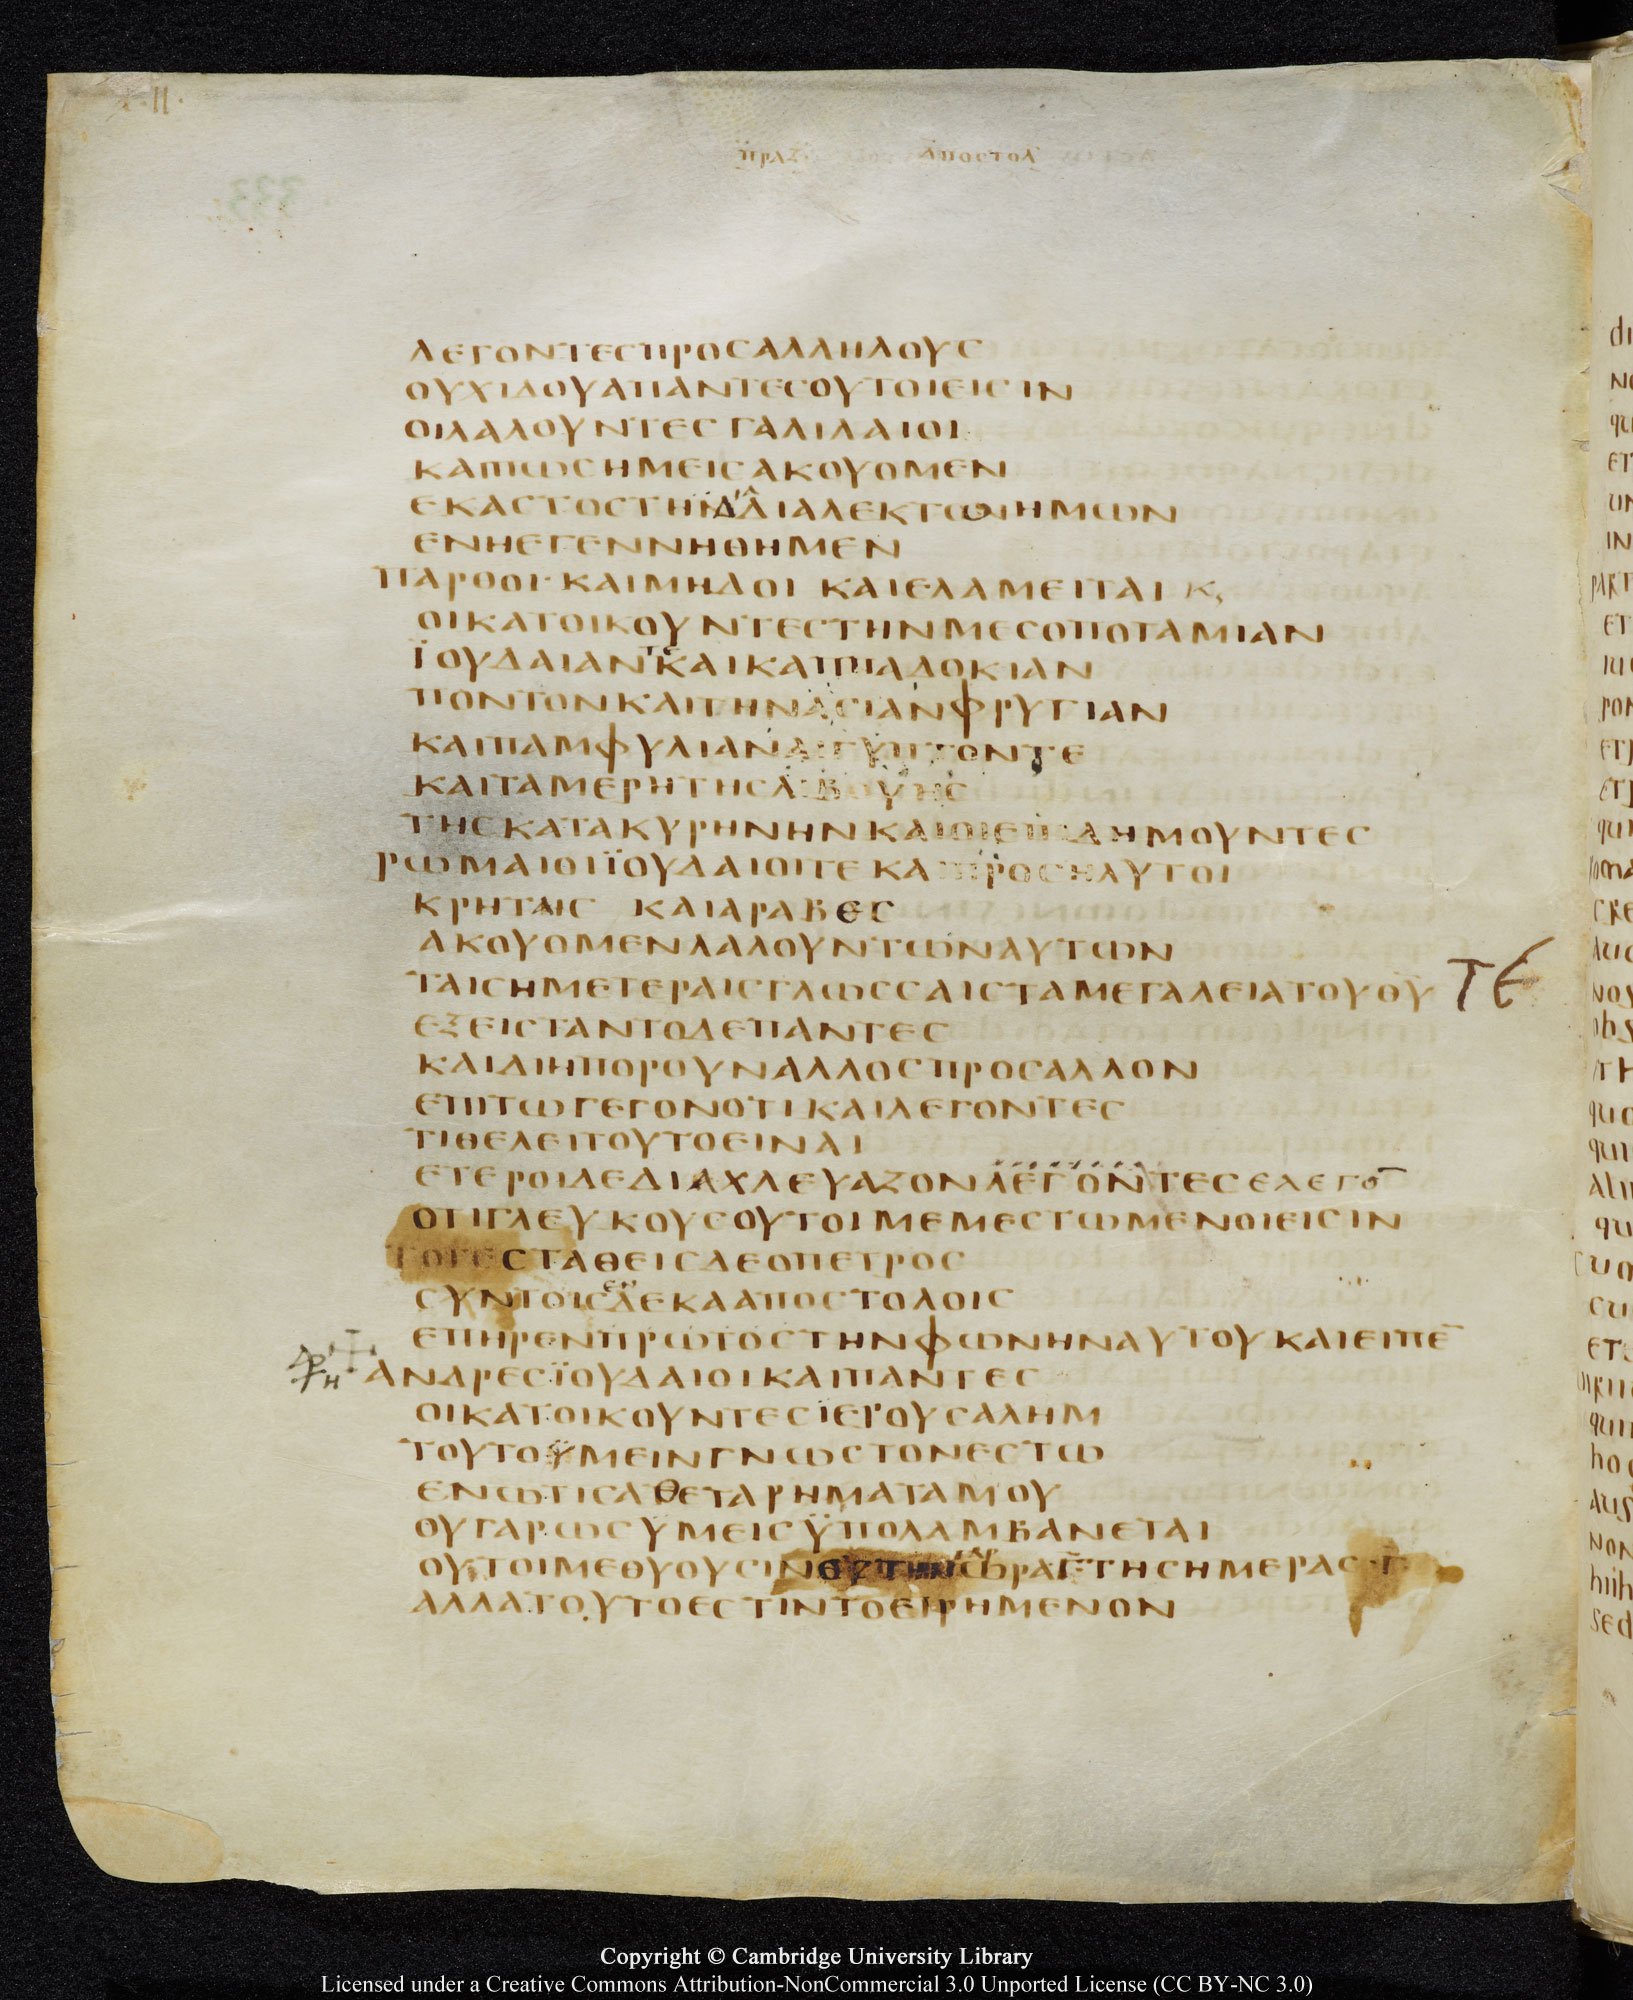 ΠΡΑΞ ΑΠΟΣΤΟΛ
333
ΛΕΓΟΝΤΕСΠΡΟСΑΛΛΗΛΟΥС
ΟΥΧΙΔΟΥΑΠΑΝΤΕСΟΥΤΟΙΕΙСΙΝ
ΟΙΛΑΛΟΥΝΤΕСΓΑΛΙΛΑΙΟΙ
ΚΑΙΠΩСΗΜΕΙСΑΚΟΥΟΜΕΝ
ΕΚΑСΤΟСΤΗΪΔΙΑΔΙΑΛΕΚΤΩΗΜΩΝ
ΕΝΗΕΓΕΝΝΗΘΗΜΕΝ
ΠΑΡΘΟΙ·ΚΑΙΜΗΔΟΙ ΚΑΙΕΛΑΜΕΙΤΑΙ Κ,
ΟΙΚΑΤΟΙΚΟΥΝΤΕСΤΗΝΜΕСΟΠΟΤΑΜΙΑΝ
ΪΟΥΔΑΙΑΝΤΕΚΑΙΚΑΠΠΑΔΟΚΙΑΝ
ΠΟΝΤΟΝΚΑΙΤΗΝΑСΙΑΝΦΡΥΓΙΑΝ
ΚΑΙΠΑΜΦΥΛΙΑΝΑΙΓΥΠΤΟΝΤΕ
ΚΑΙΤΑΜΕΡΗΤΗСΛΙΒΟΥΗС
ΤΗСΚΑΤΑΚΥΡΗΝΗΝΚΑΙΟΙΕΠΙΔΗΜΟΥΝΤΕС
ΡΩΜΑΙΟΙΪΟΥΔΑΙΟΙΤΕΚΑΙΠΡΟСΗΛΥΤΟΙ
ΚΡΗΤΑΙС ΚΑΙΑΡΑΒΕС
ΑΚΟΥΟΜΕΝΛΑΛΟΥΝΤΩΝΑΥΤΩΝ
ΤΑΙСΗΜΕΤΕΡΑΙСΓΛΩССΑΙСΤΑΜΕΓΑΛΕΙΑΤΟΥΘΥ ΤΕ
ΕΞΕΙСΤΑΝΤΟΔΕΠΑΝΤΕС
ΚΑΙΔΙΗΠΟΡΟΥΝΑΛΛΟСΠΡΟСΑΛΛΟΝ
ΕΠΙΤΩΓΕΓΟΝΟΤΙΚΑΙΛΕΓΟΝΤΕС
ΤΙΘΕΛΕΙΤΟΥΤΟΕΙΝΑΙ
ΕΤΕΡΟΙΔΕΔΙΑΧΛΕΥΑΖΟΝΛΕΓΟΝΤΕС ΕΛΕΓΟ̅
ΟΤΙΓΛΕΥΚΟΥСΟΥΤΟΙΜΕΜΕСΤΩΜΕΝΟΙΕΙСΙΝ
ΤΟΤΕСΤΑΘΕΙСΔΕΟΠΕΤΡΟС
СΥΝΤΟΙСΕΝΔΕΚΑΑΠΟСΤΟΛΟΙС
ΕΠΗΡΕΝΠΡΩΤΟСΤΗΝΦΩΝΗΝΑΥΤΟΥΚΑΙΕΙΠΕ̅
ΑΝΔΡΕСΪΟΥΔΑΙΟΙΚΑΙΠΑΝΤΕС
ΟΙΚΑΤΟΙΚΟΥΝΤΕСΪΕΡΟΥСΑΛΗΜ
ΤΟΥΤΟΫΜΕΙΝΓΝΩСΤΟΝΕСΤΩ
ΕΝΩΤΙСΑΘΕΤΑΡΗΜΑΤΑΜΟΥ
ΟΥΓΑΡΩСΥΜΕΙСΫΠΟΛΑΜΒΑΝΕΤΑΙ
ΟΥΤΟΙΜΕΘΥΟΥСΙΝ ΩΡΑ ΤΗСΗΜΕΡΑС·Γ̅
ΑΛΛΑΤΟΥΤΟΕСΤΙΝΤΟΕΙΡΗΜΕΝΟΝ
Copyright © Cambridge University Library
Licensed under a Creative Commons Attribution-NonCommercial 3.0 Unported License (CC BY-NC 3.0)